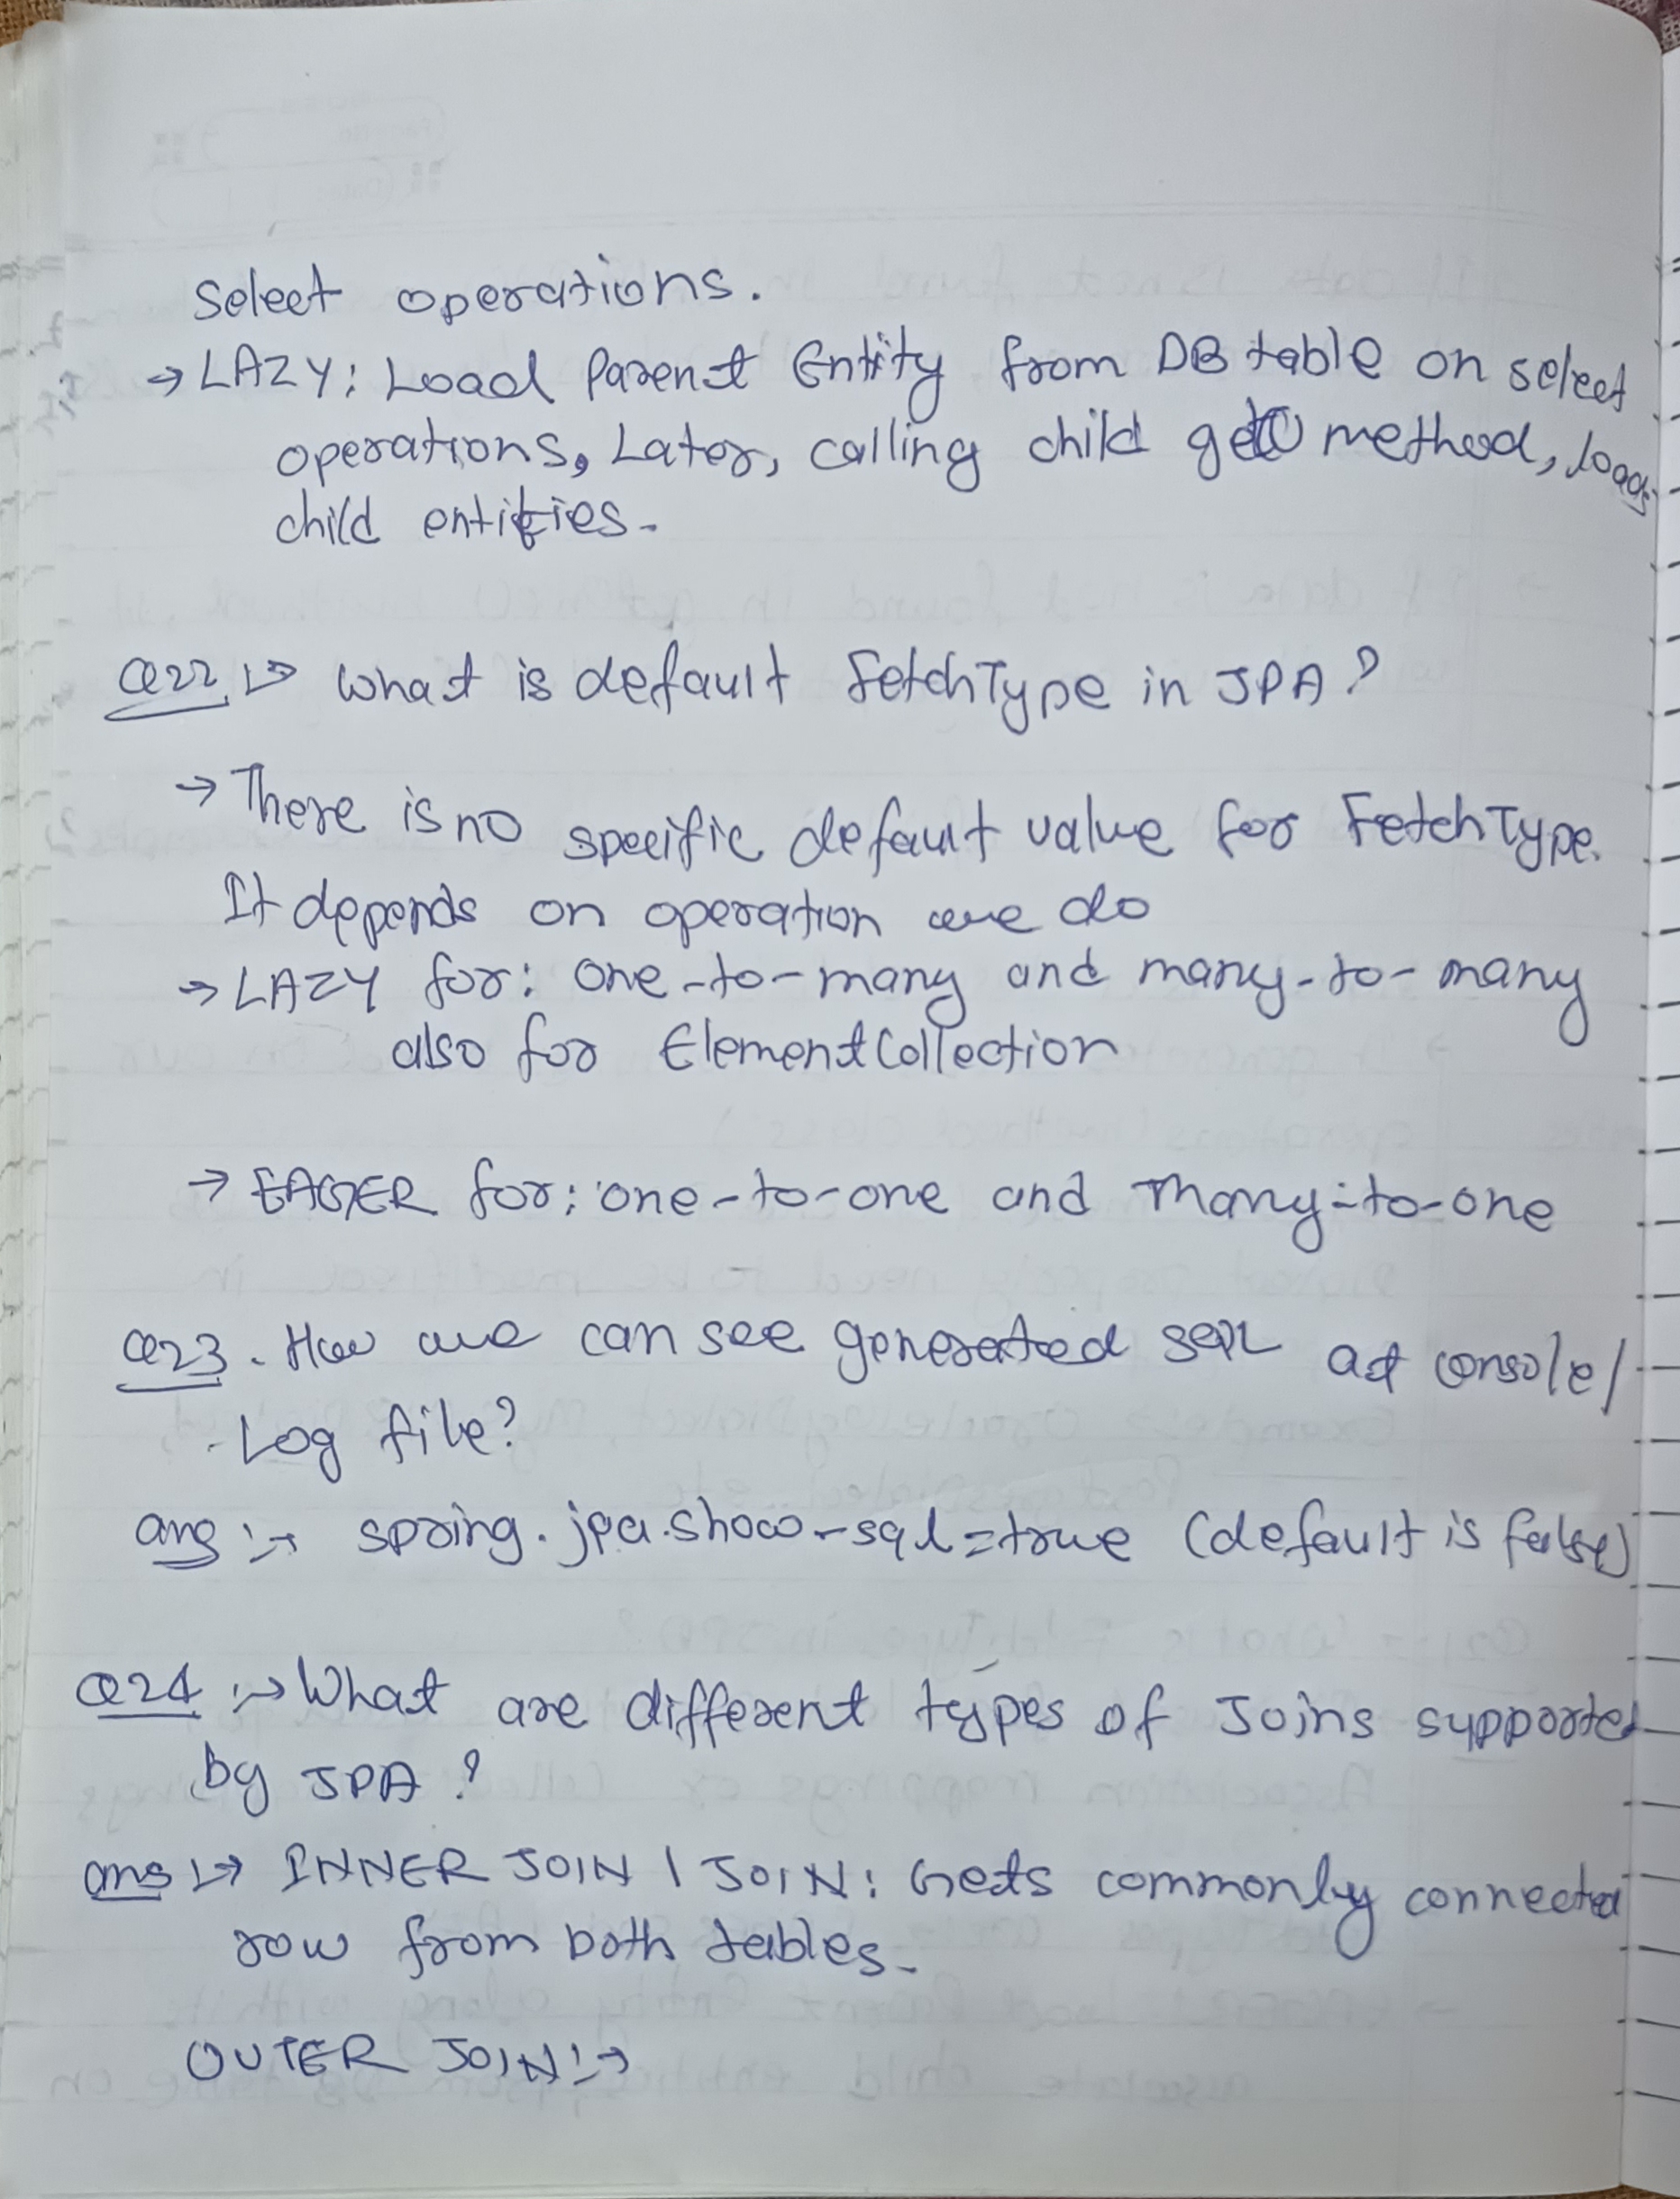 Select operations.
→ LAZY: Load Parent Entity from DB table on select
operations, Later, calling child get() method, loads
child entities.
Q22 :→ What is default FetchType in JPA ?
→ There is no specific default value for FetchType.
It depends on operation we do
→ LAZY for: one-to-many and many-to-many
also for ElementCollection
→ EAGER for: one-to-one and Many-to-one
Q23. How we can see generated SQL at console/
Log file?
ans :→ spring.jpa.show-sql=true (default is false)
Q24 :→ What are different types of Joins supported
by JPA ?
ans :→ INNER JOIN | JOIN: Gets commonly connected
row from both tables.
OUTER JOIN :→